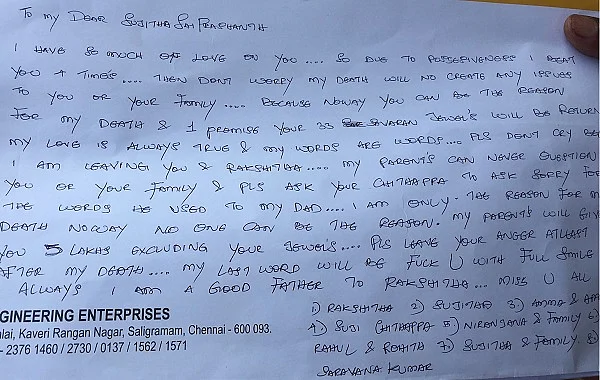 To my DEAR SUJITHA SAI PRASHANTH
I HAVE SO MUCH OF LOVE ON YOU.... SO DUE TO POSSESIVENESS I BEAT
YOU 4 TIMES.... THEN DONT WORRY MY DEATH WILL NO CREATE ANY ISSUES
TO YOU OR YOUR FAMILY.... BECAUSE NOWAY YOU CAN BE THE REASON
FOR MY DEATH & I PROMISE YOUR 33 SAVARAN JEWEL'S WILL BE RETURN
MY LOVE IS ALWAYS TRUE & MY WORDS ARE WORDS... PLS DON'T CRY
I AM LEAVING YOU & RAKSHITHA..... MY PARENT'S CAN NEVER QUESTION
YOU OR YOUR FAMILY & PLS ASK YOUR CHITHAPPA TO ASK SORRY FOR
THE WORDS HE USED TO MY DAD.... I AM ONLY. THE REASON FOR
DEATH NOWAY NO ONE CAN BE THE REASON. MY PARENTS WILL GIVE
YOU 5 LAKHS EXCLUDING YOUR JEWEL'S.... PLS LEAVE YOUR ANGER ATLEAST
AFTER MY DEATH.... MY LAST WORD WILL BE FUCK U WITH FULL SMILE
ALWAYS I AM A GOOD FATHER TO RAKSHITHA... MISS U ALL
1) RAKSHITHA 2) SUJITHA 3) AMMA &
4) SUJI CHITHAPPA 5) NIRANJANA & FAMILY 6)
RAHUL & ROHITH 7) SUJITHA & FAMILY 8)
SARAVANA KUMAR
GINEERING ENTERPRISES
lai, Kaveri Rangan Nagar, Saligramam, Chennai - 600 093.
- 2376 1460 / 2730 / 0137 / 1562 / 1571